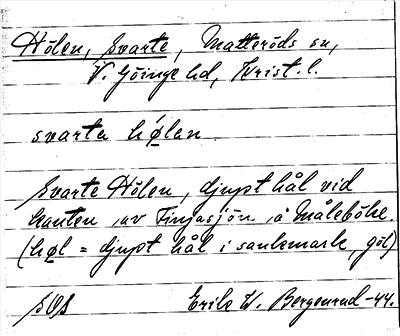 Hölen, svarte, Matteröds sn,
V. Göinge hd, Krist. l.
svarta hø̂len
Svarte Hölen, djupt hål vid
kanten av Finjasjön å Måleböke.
(høl = djupt hål i sankmark, göl)
SOS Erik W. Bergenrud -44.